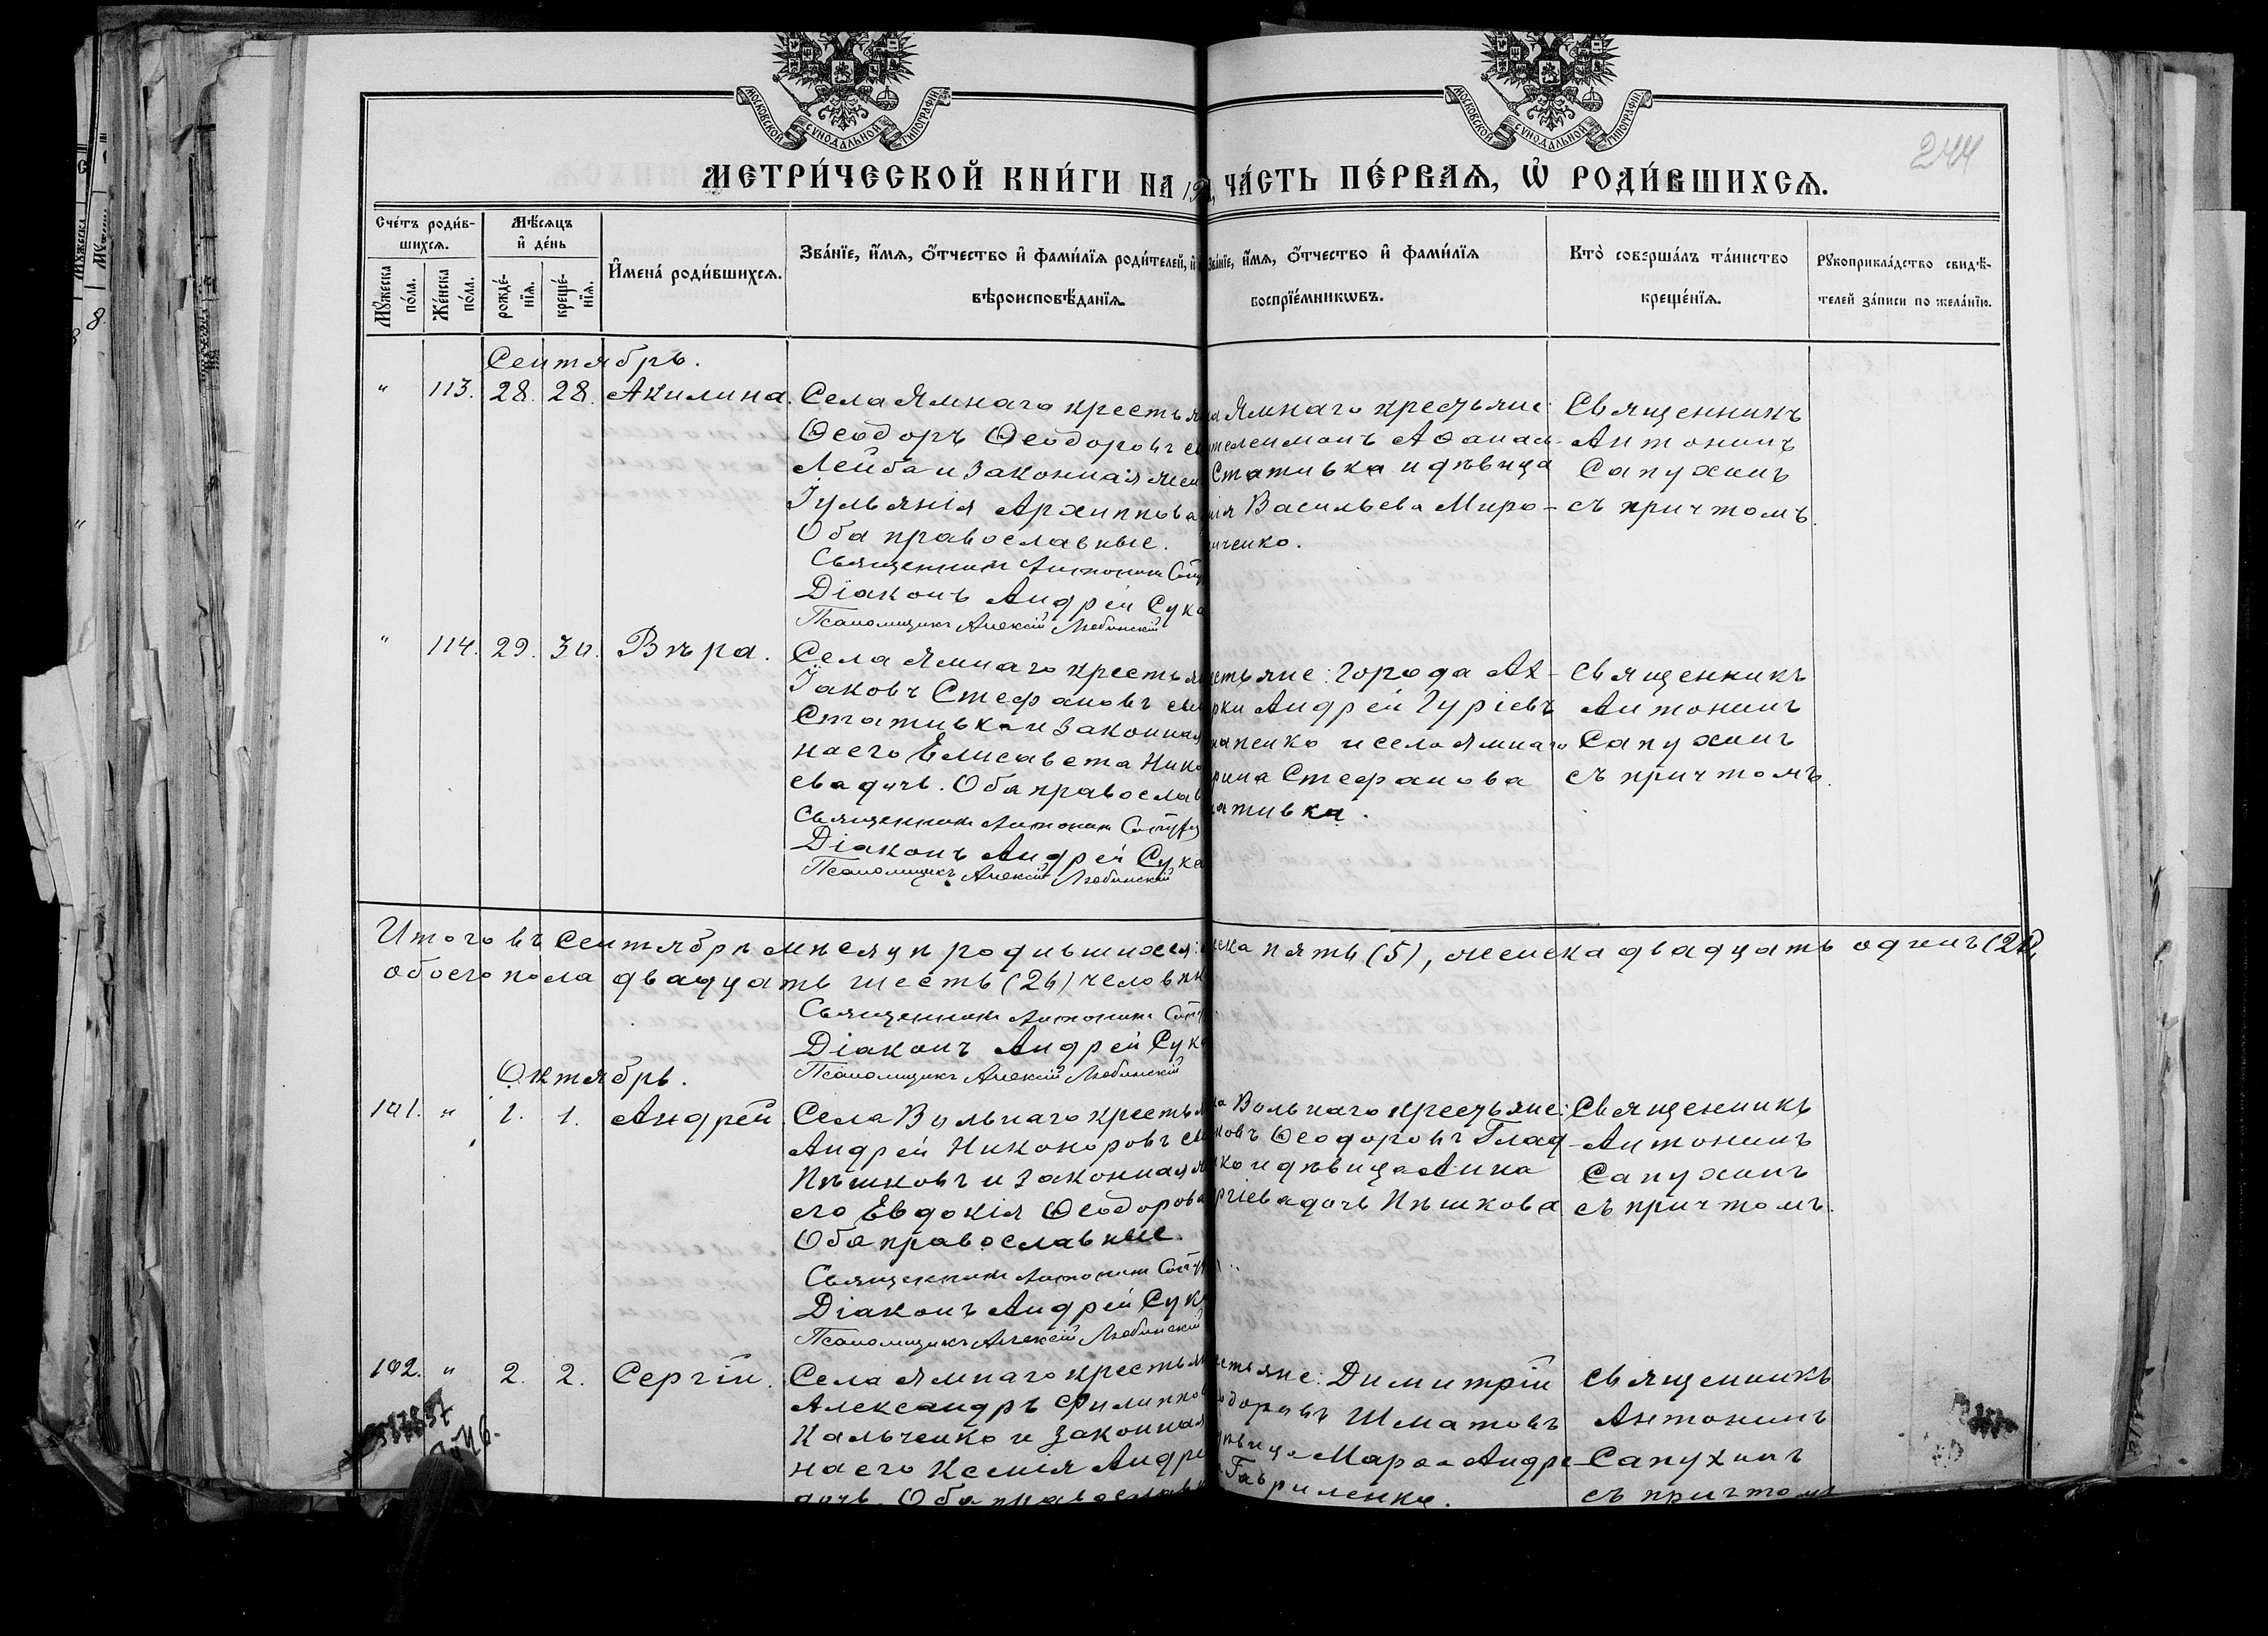 МОСКОВСКОЙ СУНОДАЛЬНОЙ ТИПОГРАФІИ
МОСКОВСКОЙ СУНОДАЛЬНОЙ ТИПОГРАФІИ
244
МЕТРИ́ЧЕСКОЙ КНИ́ГИ НА 19 ЧА́СТЬ ПЕ́РВАѦ, Ѡ҆ РОДИ́ВШИХСѦ.
Сче́тъ роди́в-
шихсѧ.
Мꙋ́жеска по́ла.
Же́нска по́ла.
Мѣ́сѧцъ
и҆ де́нь
рожде́-нїѧ.
креще́-нїѧ.
И҆мена̀ роди́вшихсѧ.
Зва́нїе, и҆́мѧ, ѻ҆́тчество и҆ фами́лїѧ роди́телей, и҆
вѣроисповѣ́данїѧ.
Зва́нїе, и҆́мѧ, ѻ҆́тчество и҆ фами́лїѧ
воспрїе́мникѡвъ.
Кто̀ соверша́лъ та́инство
креще́нїѧ.
Рꙋкоприкла́дство свидѣ́-
телей за́писи по жела́нїю.
Сентябрь.
" 113. 28. 28. Акилина.
Села Ямнаго крестья
Ѳеодоръ Ѳеодоровъ с
Лейба и законная жен
Іульянія Архиппова
Оба православные.
Священникъ Антонинъ Сапу
Діаконъ Андрей Сука
Псаломщикъ Алексій Любинскій
ла Ямнаго крестьяне:
телеимонъ Аѳанас-
Стативка и дѣвица
нія Васильева Миро-
иченко.
Священникъ
Антонинъ
Сапухинъ
съ причтомъ.
" 114. 29. 30. Вѣра.
Села Ямнаго крестья
Іаковъ Стефановъ с
Стативка и законная
на его Елисавета Нико
ева дочь. Оба православ
Священникъ Антонинъ Сапух
Діаконъ Андрей Сука
Псаломщикъ Алексій Любинскій
естьяне: города Ах-
рки Андрей Гуріевъ
паненко и села Ямнаго
рина Стефанова
ативка.
Священникъ
Антонинъ
Сапухинъ
съ причтомъ.
Итого въ Сентябрѣ мѣсяцѣ родившихся: жеска пять (5), женска двадцать одинъ (21),
обоего пола двадцать шесть (26) человѣк
Священникъ Антонинъ Сапу
Діаконъ Андрей Сука
Псаломщикъ Алексій Любинскій
Октябрь.
101. " 1. 1. Андрей
Села Вольнаго крестья
Андрей Никоноровъ с
Пѣшковъ и законная ж
его Евдокія Ѳеодорова
Оба православные.
Священникъ Антонинъ Сапу
Діаконъ Андрей Сук
Псаломщикъ Алексій Любинскій
ла Вольнаго крестьяне:
ковъ Ѳеодоровъ Глад-
ко и дѣвица Анна
ргіева дочь Пѣшкова
Священникъ
Антонинъ
Сапухинъ
съ причтомъ.
102. " 2. 2. Сергій.
Села Ямнаго крестьян
Александръ Филиппов
Кальченко и законная
на его Ксенія Андре
дочь. Оба православн
естьяне: Димитрій
одоровъ Шматовъ
дѣвица Марѳа Андре-
Гавриленко.
Священникъ
Антонинъ
Сапухинъ
съ причтомъ